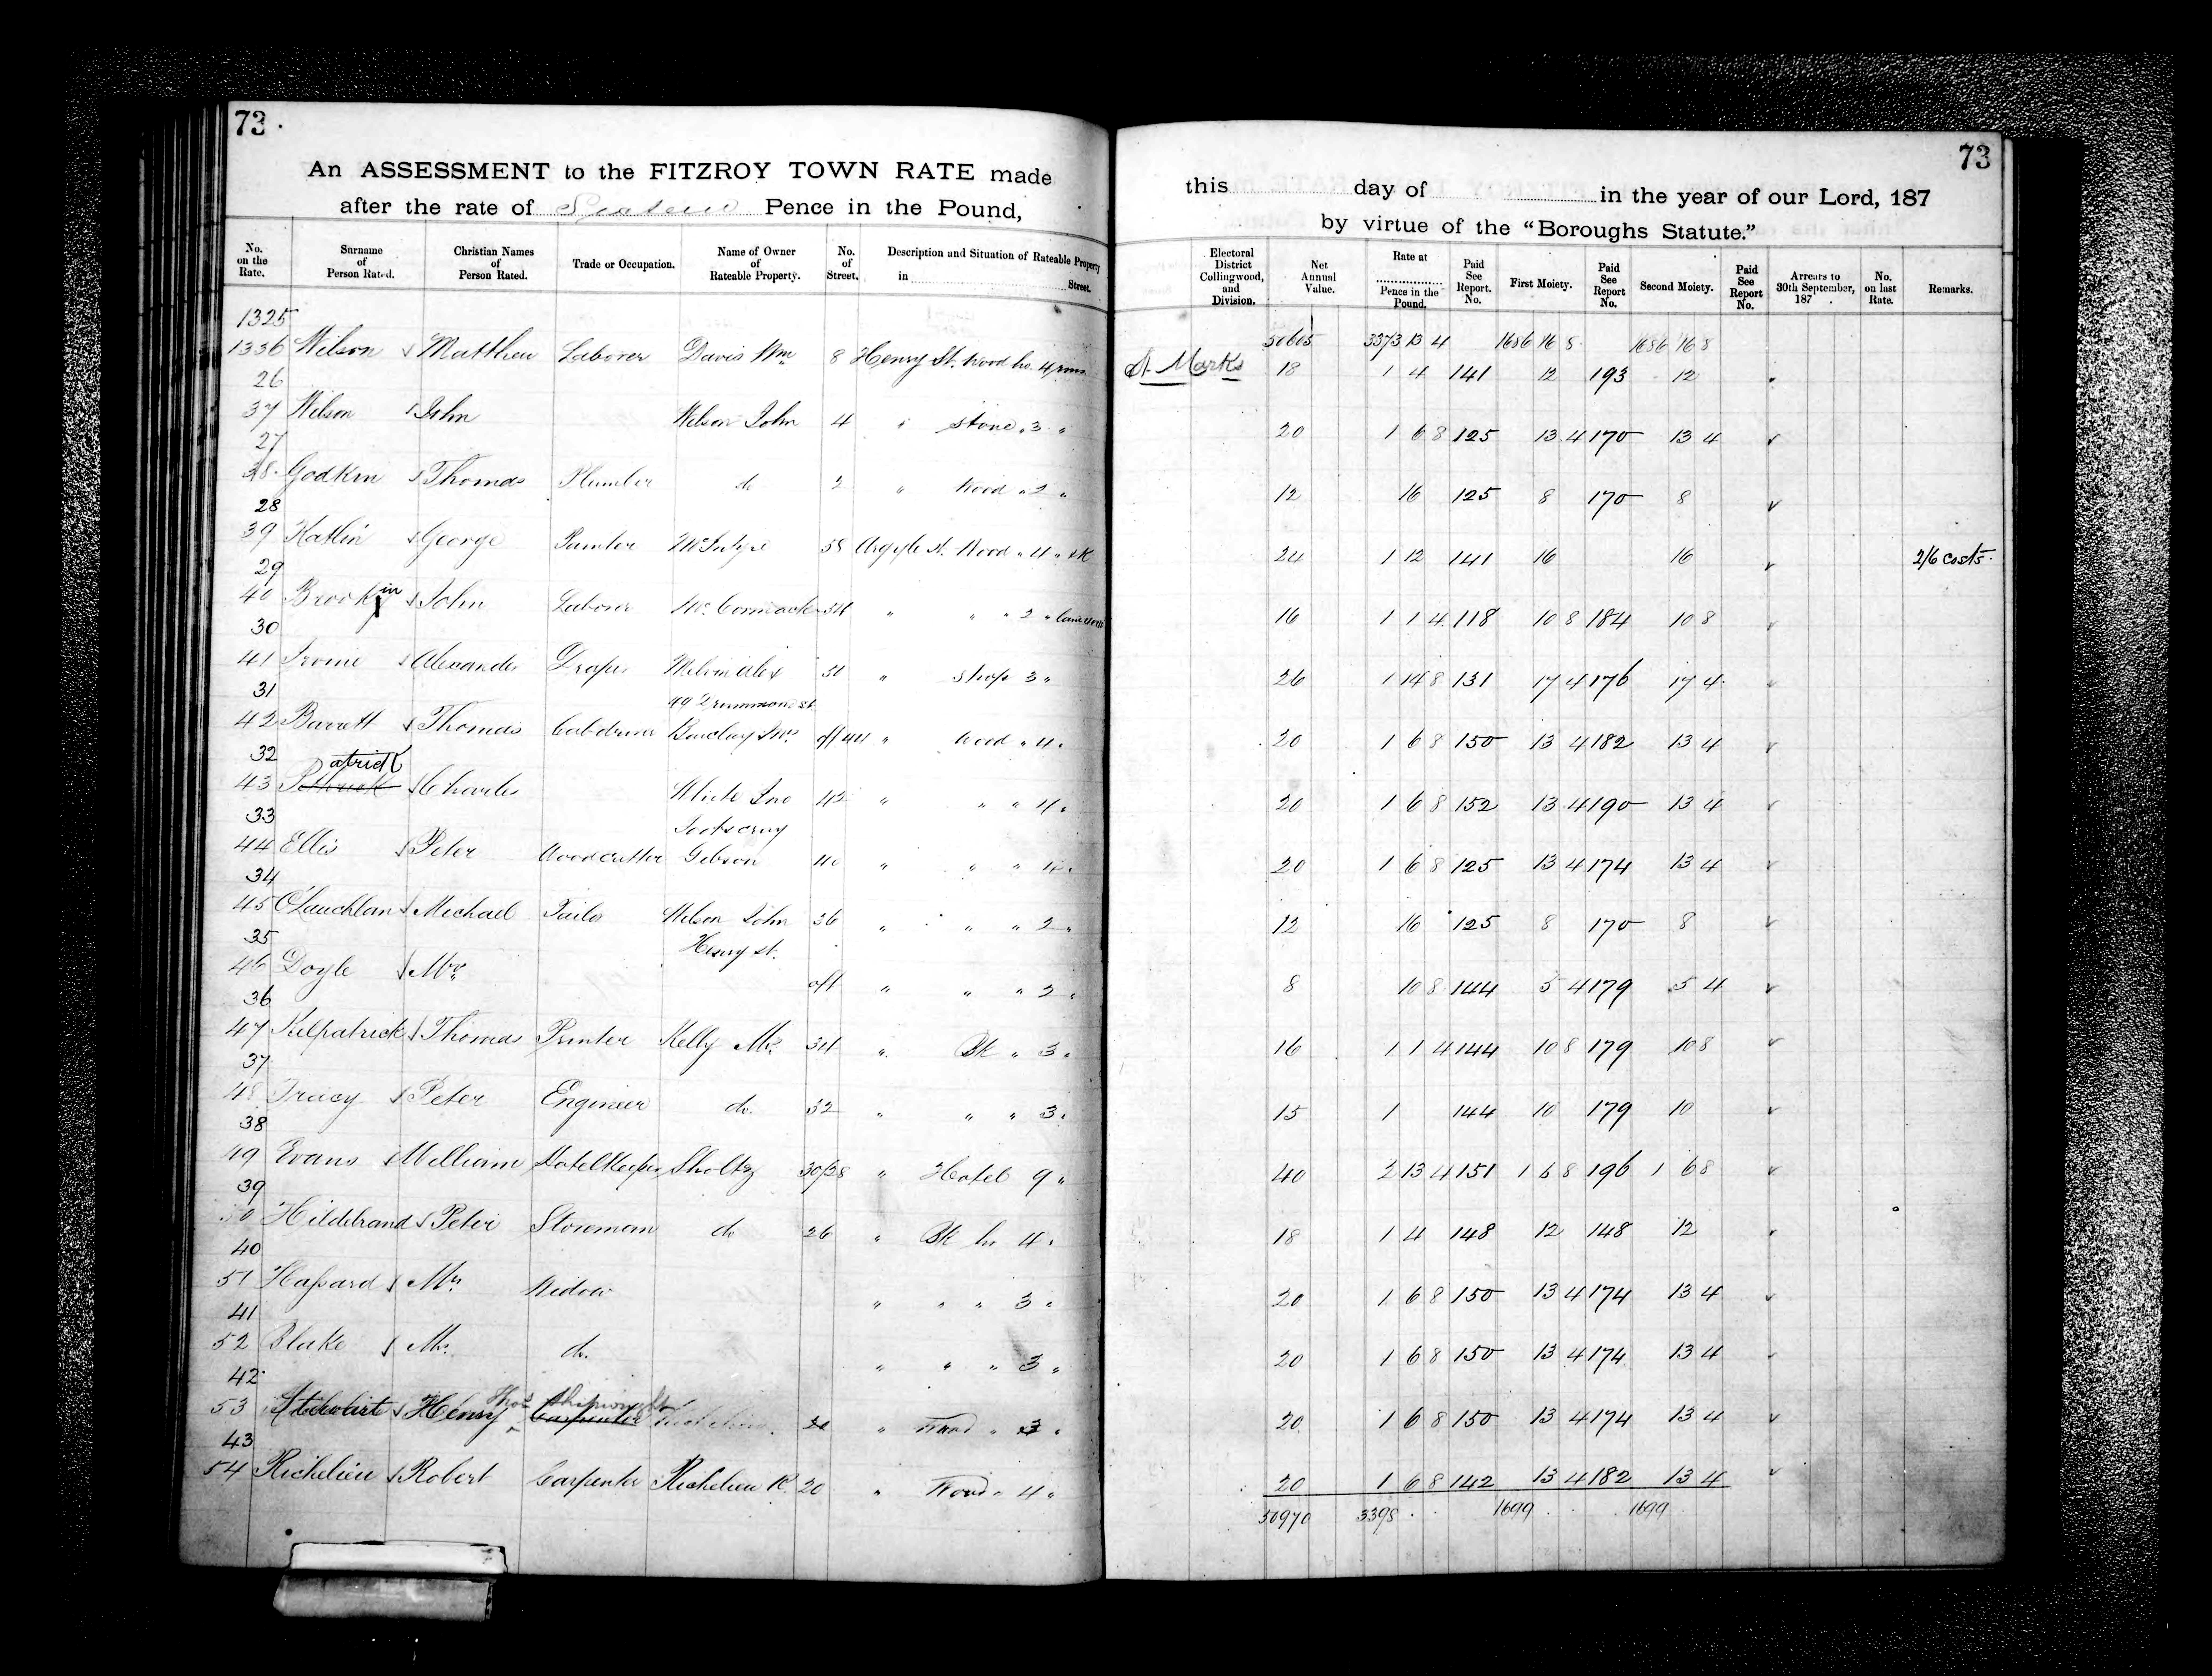 73
An ASSESSMENT to the FITZROY TOWN RATE made
after the rate of Sixteen Pence in the Pound,
No. on the Rate. Surname of Person Rated. Christian Names of Person Rated. Trade or Occupation. Name of Owner of Rateable Property. No. of Street. Description and Situation of Rateable Property in Street.
1325
1336 Wilson Matthew Laborer Davis Wm 8 Henry St. Wood ho. 4 rms
26
37 Wilson John Wilson John 4 " Stone " 3 "
27
38 Godkin Thomas Plumber do 2 " Wood " 2 "
28
39 Katlin George Painter McIntyre 58 Argyle St. Wood " 4 " & K
29
40 Brookin John Laborer McCormack " " " 2 "
30
41 Alexander Draper Melvin Alex " Shop 3 "
31 99 Drummond st
42 Barrett Thomas Cabdriver Barclay Mrs off 44 " Wood " 4 "
32 atrick
43 P Charles White Jno 42 " " " 4 "
33 Footscray
44 Ellis Peter Woodcutter Gibson 40 " " " 4 "
34
45 O'Lauchlan Michael Tailor Wilson John 36 " " " 2 "
35 Henry st.
46 Doyle Mrs off " " " 2 "
36
47 Kilpatrick Thomas Printer Kelly Mr 34 " Bk " 3 "
37
48 Tracy Peter Engineer do. 32 " " " 3 "
38
49 Evans William Hotelkeeper Sholtz 30/28 " Hotel 9 "
39
50 Hildebrand Peter Storeman do 26 " Bk ho 4 "
40
51 Hassard Mrs Widow " " " 3 "
41
52 Blake Mrs do. " " " 3 "
42 Thos Shipwright
53 Stewart Henry Carpenter " Wood " 3 "
43
54 Richelieu Robert Carpenter Richelieu R. 20 " Wood " 4 "
73
this day of in the year of our Lord, 187
by virtue of the "Boroughs Statute."
Electoral District Collingwood, and Division. Net Annual Value. Rate at Pence in the Pound. Paid See Report. No. First Moiety. Paid See Report No. Second Moiety. Paid See Report No. Arrears to 30th September, 187 . No. on last Rate. Remarks.
50605 3373 13 4 1686 16 8 1686 16 8
St. Marks 18 1 4 141 12 193 12
20 1 6 8 125 13 4 170 13 4
12 16 125 8 170 8
24 1 12 141 16 16 2/6 costs.
16 1 1 4 118 10 8 184 10 8
26 1 14 8 131 17 4 176 17 4
20 1 6 8 150 13 4 182 13 4
20 1 6 8 152 13 4 190 13 4
20 1 6 8 125 13 4 174 13 4
12 16 125 8 170 8
8 10 8 144 5 4 179 5 4
16 1 1 4 144 10 8 179 10 8
15 1 144 10 179 10
40 2 13 4 151 1 6 8 196 1 6 8
18 1 4 148 12 148 12
20 1 6 8 150 13 4 174 13 4
20 1 6 8 150 13 4 174 13 4
20 1 6 8 150 13 4 174 13 4
20 1 6 8 142 13 4 182 13 4
50970 3398 1699 1699